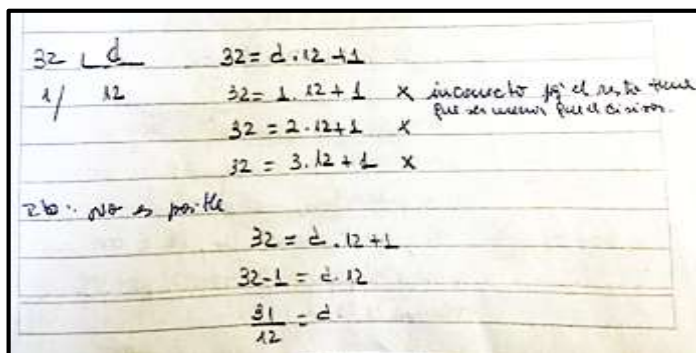 32 | d 32 = d . 12 + 1
1/ 12 32 = 1 . 12 + 1 x incorrecto pq' el resto tiene
que ser menor que el divisor.
32 = 2 . 12 + 1 x
32 = 3 . 12 + 1 x
Rta: No es posible
32 = d . 12 + 1
32 - 1 = d . 12
31/12 = d.